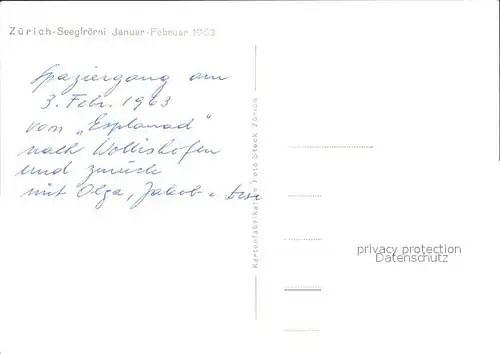 Zürich-Seegfrörni Januar-Februar 1963
Spaziergang am
3. Febr. 1963
vom „Esplanad"
nach Wollishofen
und zurück
mit Olga, Jakob u.
Kartenfabrikation Foto Steck Zürich
privacy protection
Datenschutz